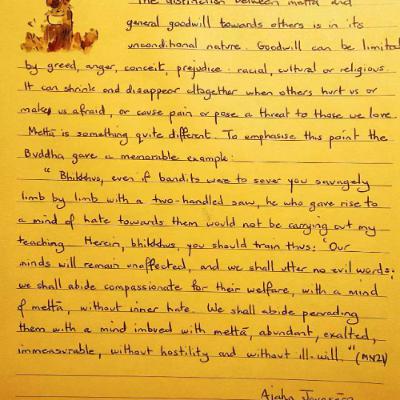 The distinction between mettā and
general goodwill towards others is in its
unconditional nature. Goodwill can be limited
by greed, anger, conceit, prejudice: racial, cultural or religious.
It can shrink and disappear altogether when others hurt us or
makes us afraid, or cause pain or pose a threat to those we love.
Mettā is something quite different. To emphasise this point the
Buddha gave a memorable example:
" Bhikkhus, even if bandits were to sever you savagely
limb by limb with a two-handled saw, he who gave rise to
a mind of hate towards them would not be carrying out my
teaching Herein, bhikkhus, you should train thus: 'Our
minds will remain unaffected, and we shall utter no evil words;
we shall abide compassionate for their welfare, with a mind
of mettā, without inner hate. We shall abide pervading
them with a mind imbued with mettā, abundant, exalted,
immeasurable, without hostility and without ill-will.'" (MN21)
Ajahn